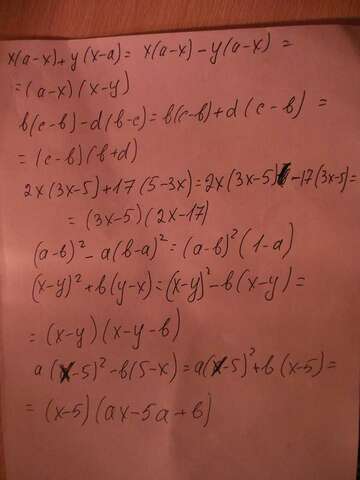 x(a-x)+y(x-a) = x(a-x)-y(a-x) =
=(a-x)(x-y)
b(c-b)-d(b-c)=b(c-b)+d(c-b) =
=(c-b)(b+d)
2x(3x-5)+17(5-3x)=2x(3x-5)-17(3x-5)=
=(3x-5)(2x-17)
(a-b)²-a(b-a)²=(a-b)²(1-a)
(x-y)²+b(y-x)=(x-y)²-b(x-y)=
=(x-y)(x-y-b)
a(x-5)²-b(5-x)=a(x-5)²+b(x-5)=
=(x-5)(ax-5a+b)